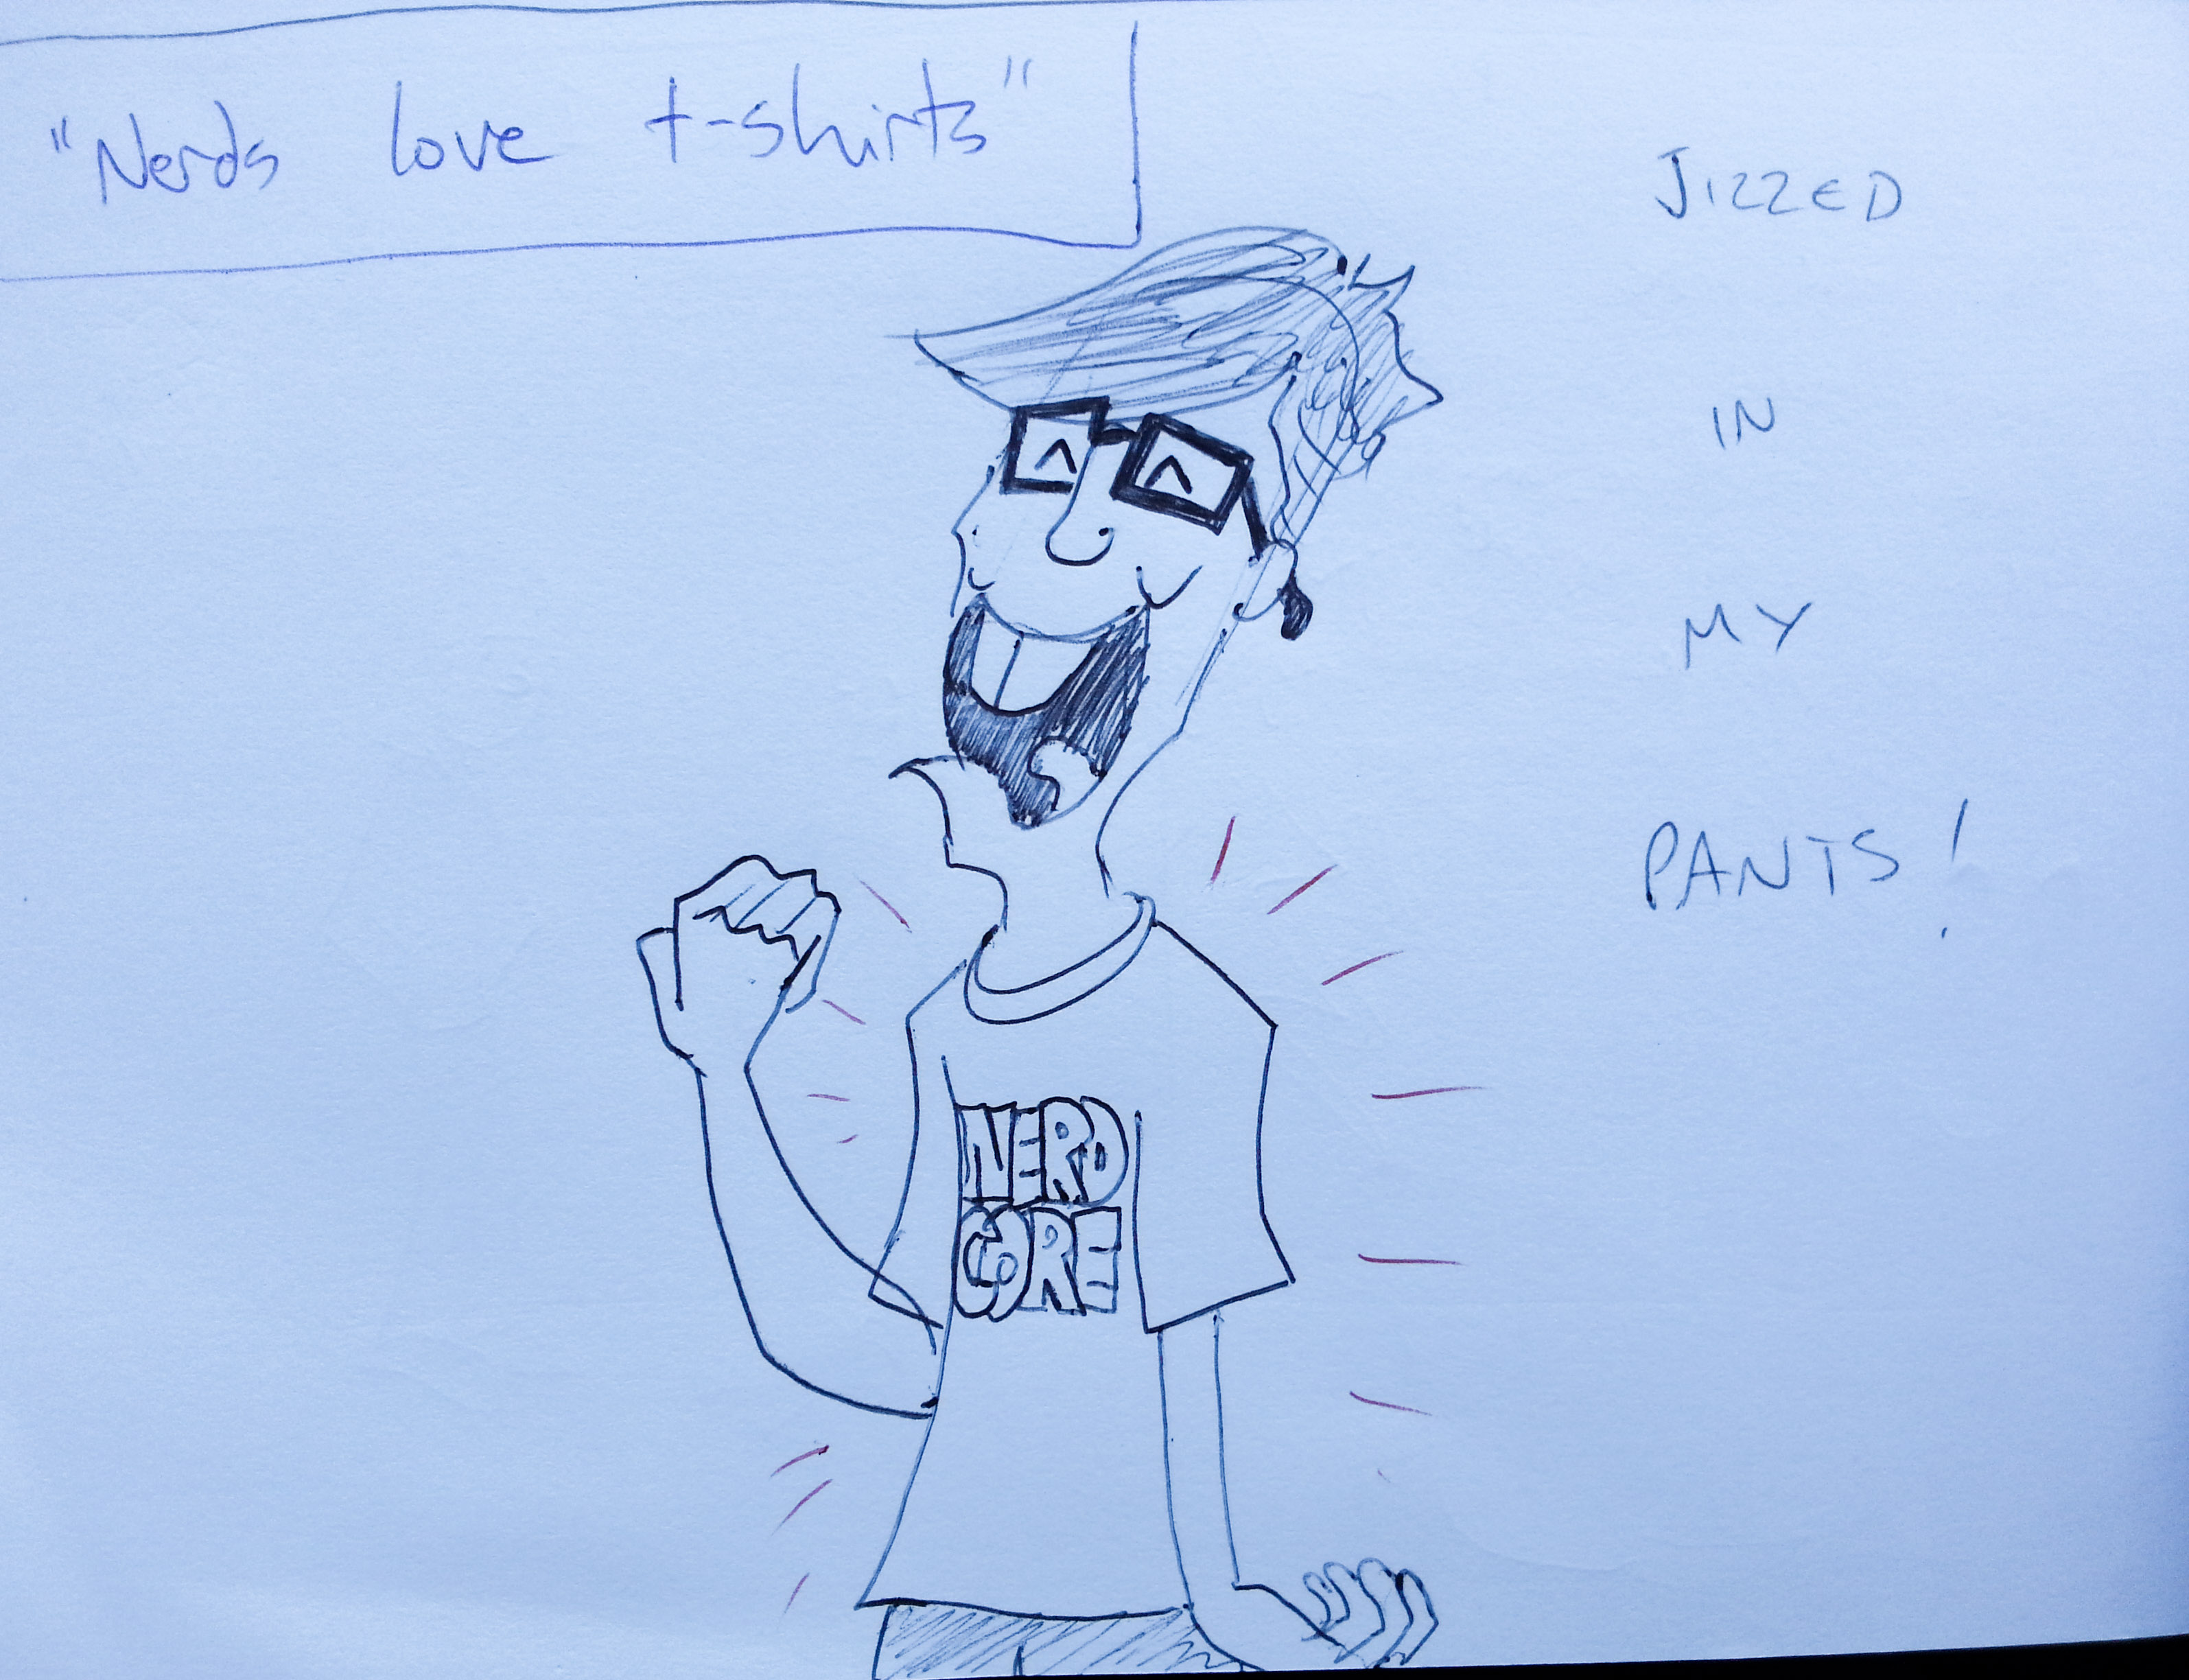 "Nerds love t-shirts"
JIZZED
IN
MY
PANTS!
NERD
CORE